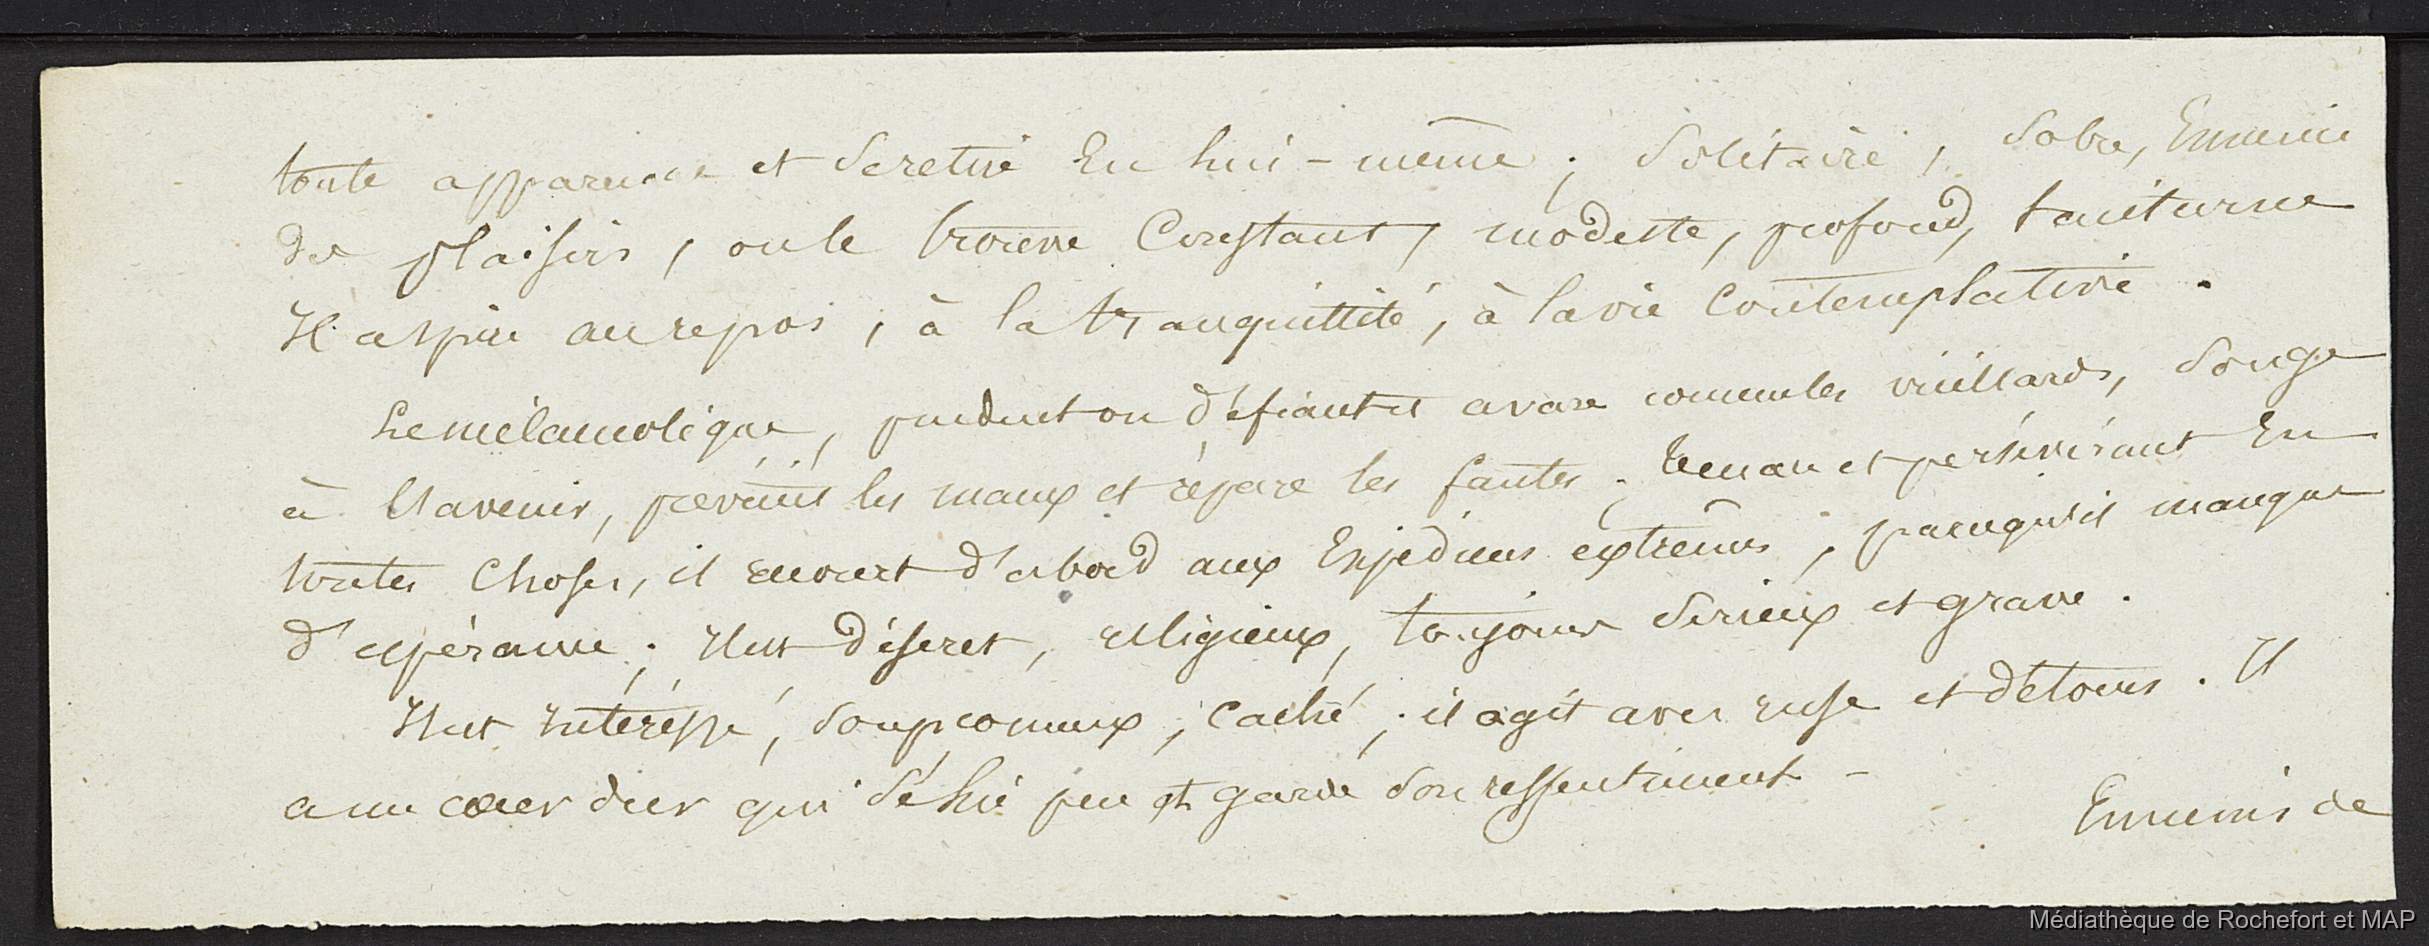 toute apparence et se retire En lui-même ; Solitaire, Sobre, Ennemi
des plaisirs, on le trouve Constant, modeste, profond, taciturne
Il aspire au repos, à la tranquillité, à la vie Contemplative.
Le mélancolique, prudent ou défiant et avare comme les vieillards, Songe
à l'avenir, prévient les maux et répare les fautes ; tenace et persévérant En
toutes Choses, il recourt d'abord aux Expédiens extrêmes, parcequ'il manque
d'espérance ; Il est discret, religieux, toujours Sérieux et grave.
Il est Intéressé, Soupçonneux, Caché ; il agit avec ruse et détours. Il
a un coeur dur qui Sé lie peu et garde Son ressentiment -
Ennemis de
Médiathèque de Rochefort et MAP